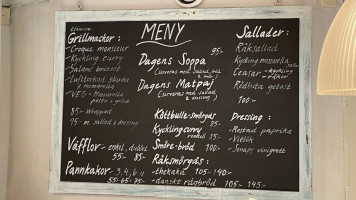 MENY
Grillmackor :
- Croque monsieur
- Kyckling curry
- Salami brieost
- Lufttorkad skinka
& mozzarella
- VEG - Mozzarella
pesto & grillad
85:- Wrapped
95:- m. sallad & dressing
Våfflor - enkel, dubbel
55:- 85:-
Pannkakor - 3, 4, 6
55- 65- 75-
Dagens Soppa 95:-
(serveras med sallad, bröd
Dagens Matpaj
(serveras med sallad,
& dressing)
Köttbulle-smörgås
Kyckling curry
Smöre-bröd 100:-
Räksmörgås:
105:- 140:-
- danskt rågbröd 105:- 145:-
Sallader:
- Räksallad
- Kyckling mozzarella
- Ceasar - kyckling
- räkor
- Rödbeta getost
100:-
Dressing :
- Rostad paprika
- Vitlök
- Senaps vinigrett